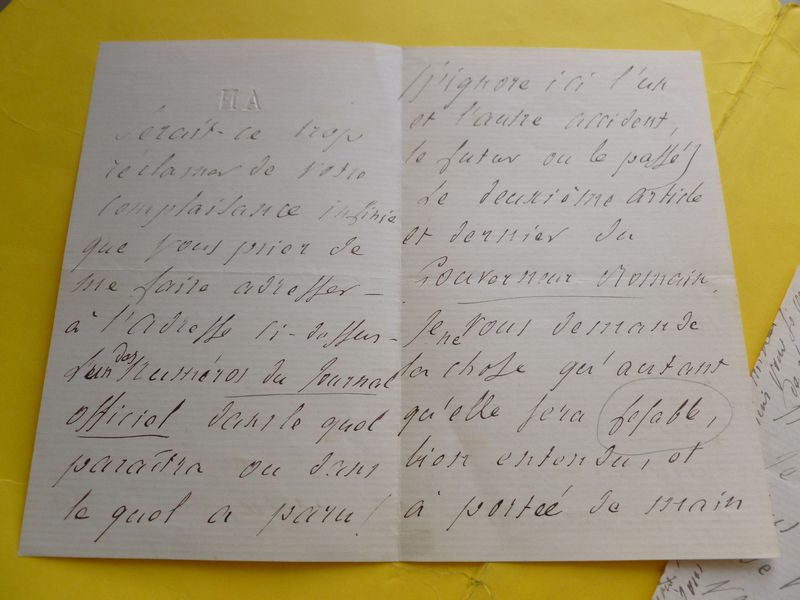 HA
Serait-ce trop
réclamer de votre
complaisance infinie
que vous prier de
me faire adresser –
à l'adresse ci-dessus –
l'un des Numéros du Journal
officiel dans le quel
paraîtra ou dans
le quel a paru !
(J'ignore ici l'un
et l'autre accident,
le futur ou le passé)
Le deuxième article
et dernier du
Gouverneur Romain.
Je ne vous demande
la chose qu'autant
qu'elle sera fesable,
bien entendu, et
à portée de main